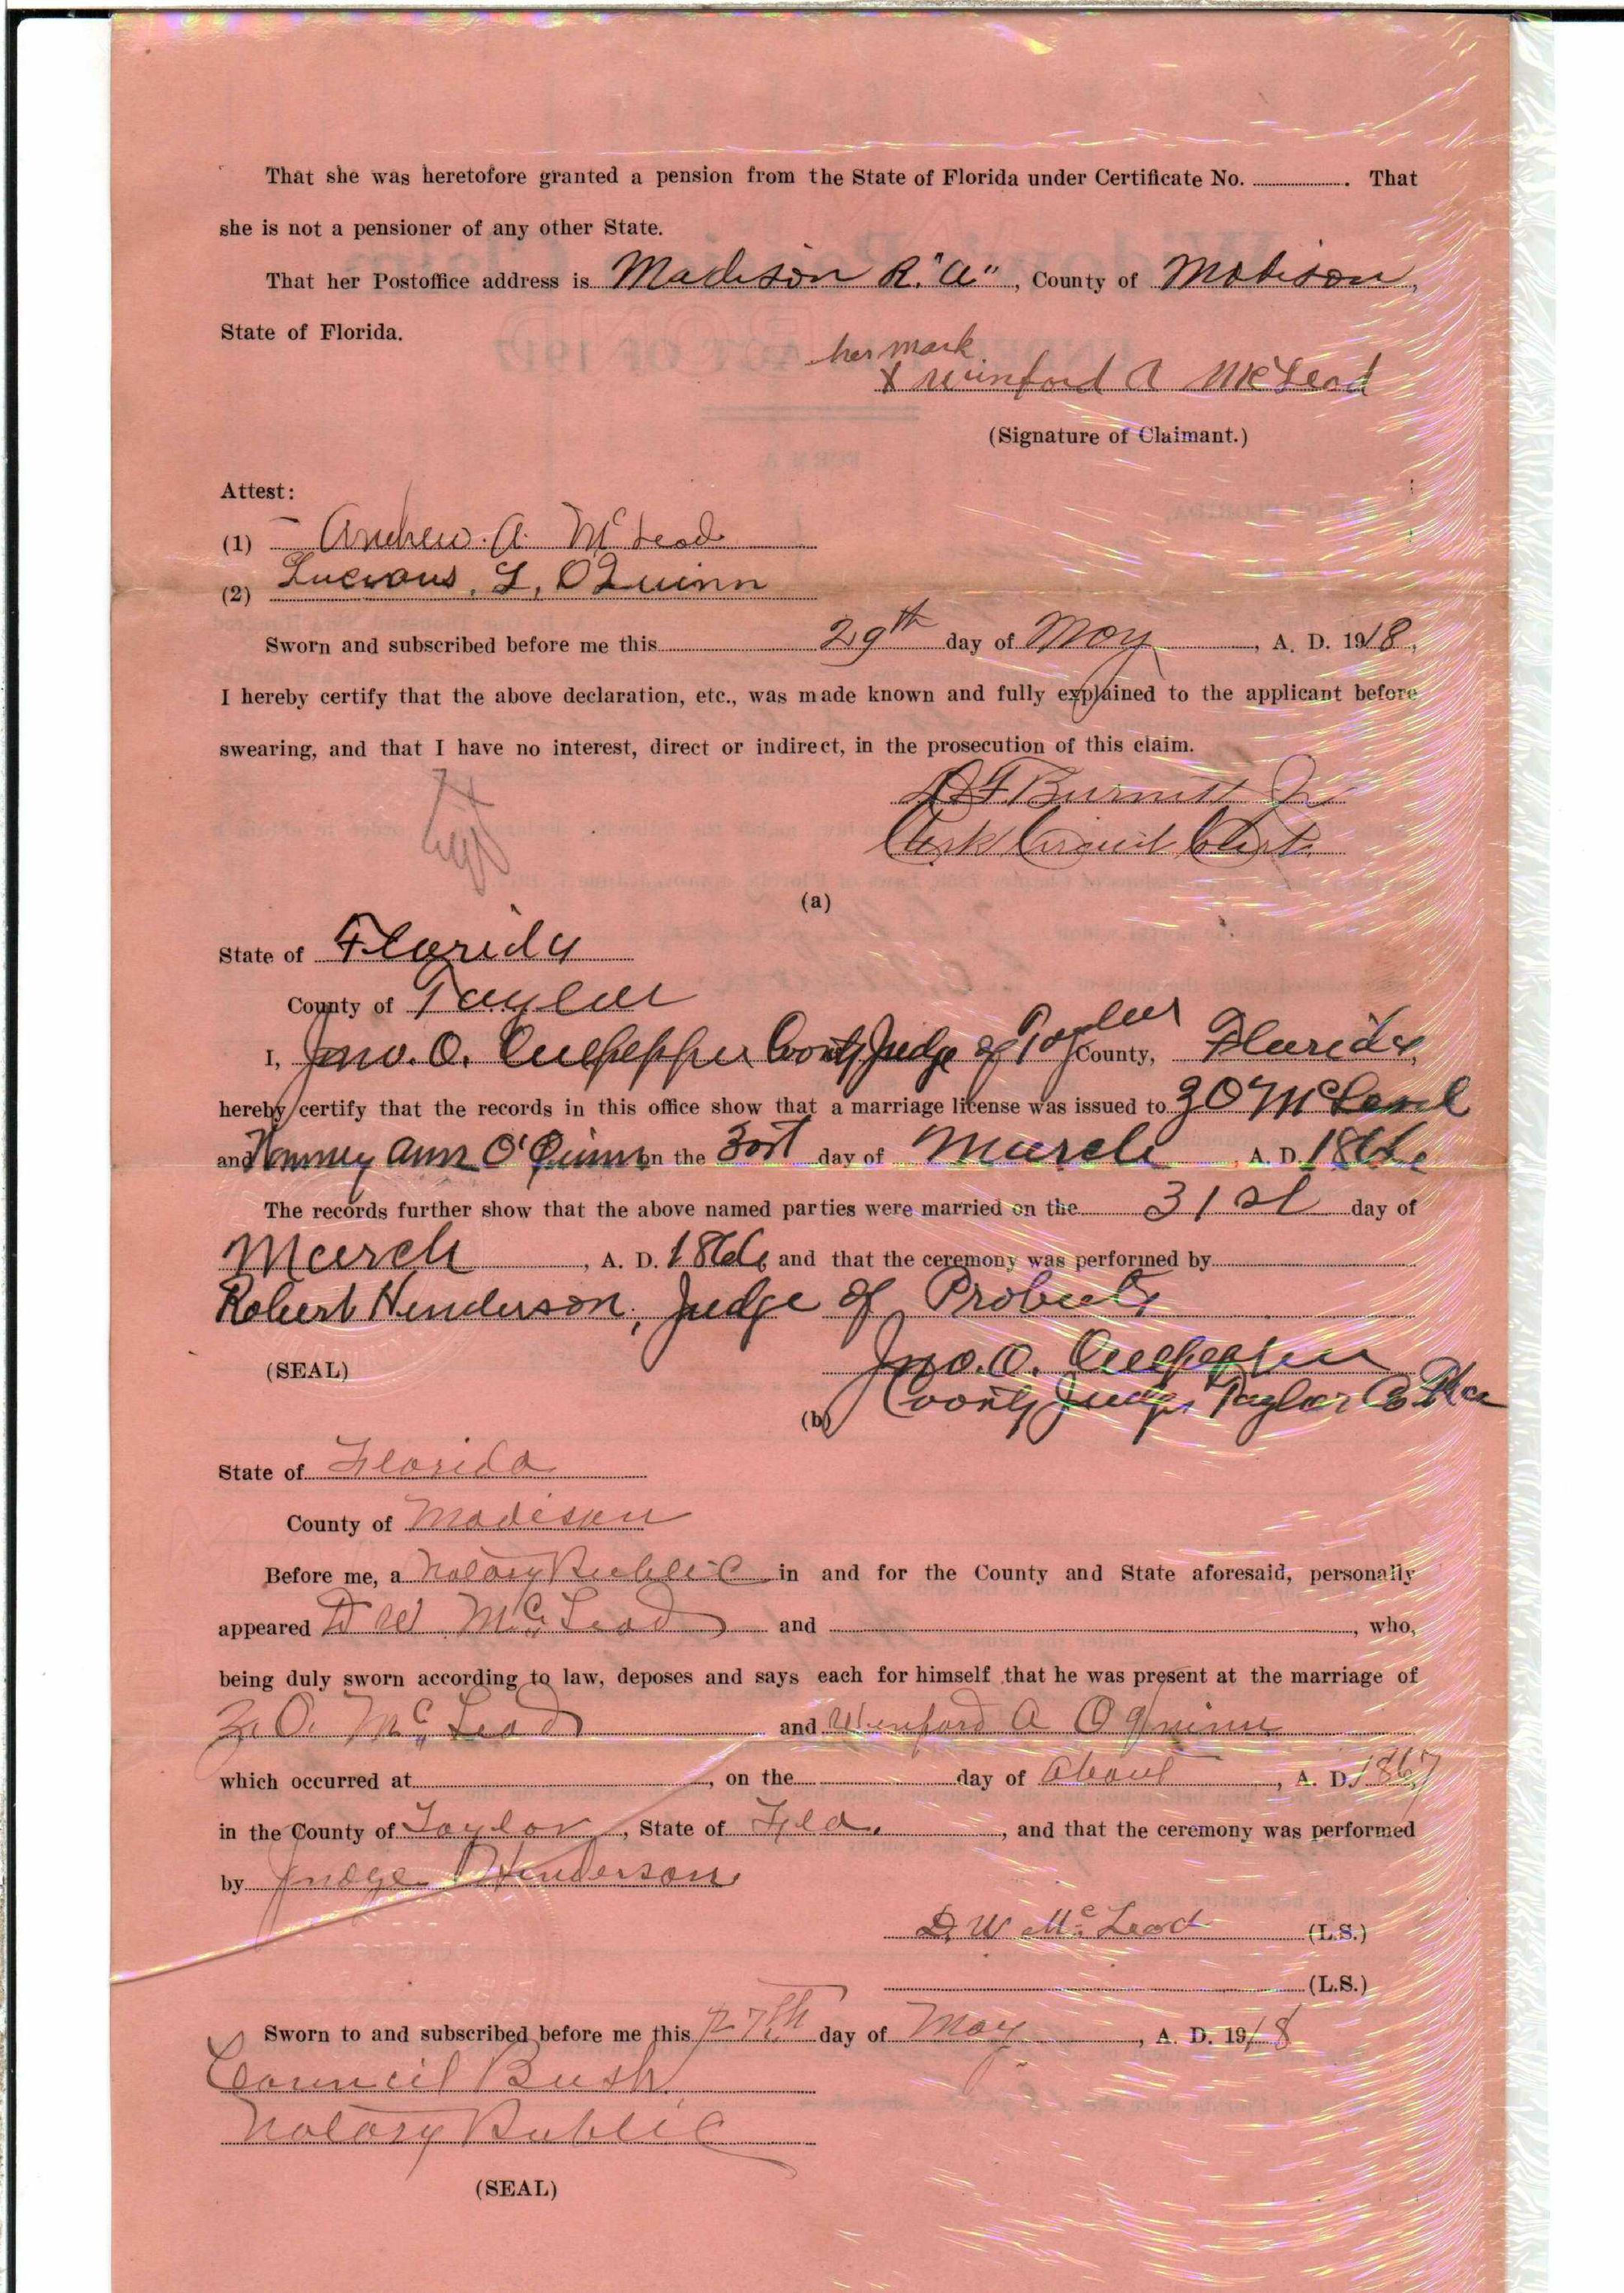 That she was heretofore granted a pension from the State of Florida under Certificate No. ............ . That
she is not a pensioner of any other State.
That her Postoffice address is Madison R. "A", County of Madison,
State of Florida.
her mark
X Winford A McLeod
(Signature of Claimant.)
Attest:
(1) Andrew. A. McLeod
(2) Lucious. L. OQuinn
Sworn and subscribed before me this 29th day of May, A. D. 1918,
I hereby certify that the above declaration, etc., was made known and fully explained to the applicant before
swearing, and that I have no interest, direct or indirect, in the prosecution of this claim.
Burnett Jr
Clerk Circuit Court.
(a)
State of Florida
County of Taylor
I, Jno. O. Culpepper County Judge of Taylor County, Florida,
hereby certify that the records in this office show that a marriage license was issued to Z O McLeod
and Ann O'Quinn on the 30st day of March, A. D. 1866
The records further show that the above named parties were married on the 31st day of
March, A. D. 1866 and that the ceremony was performed by
Robert Henderson, Judge of Probate
(SEAL)
Jno. O. Culpepper
County Judge, Taylor Co Fla
(b)
State of Florida
County of Madison
Before me, a Notary Public in and for the County and State aforesaid, personally
appeared D W McLeod and ............, who,
being duly sworn according to law, deposes and says each for himself that he was present at the marriage of
Z. O. McLeod and Winford A Oquinn
which occurred at ............, on the ............ day of about, A. D. 1867
in the County of Taylor, State of Fla., and that the ceremony was performed
by Judge Henderson
D. W McLeod (L.S.)
(L.S.)
Sworn to and subscribed before me this 27th day of May, A. D. 1918
Council Bush
Notary Public
(SEAL)